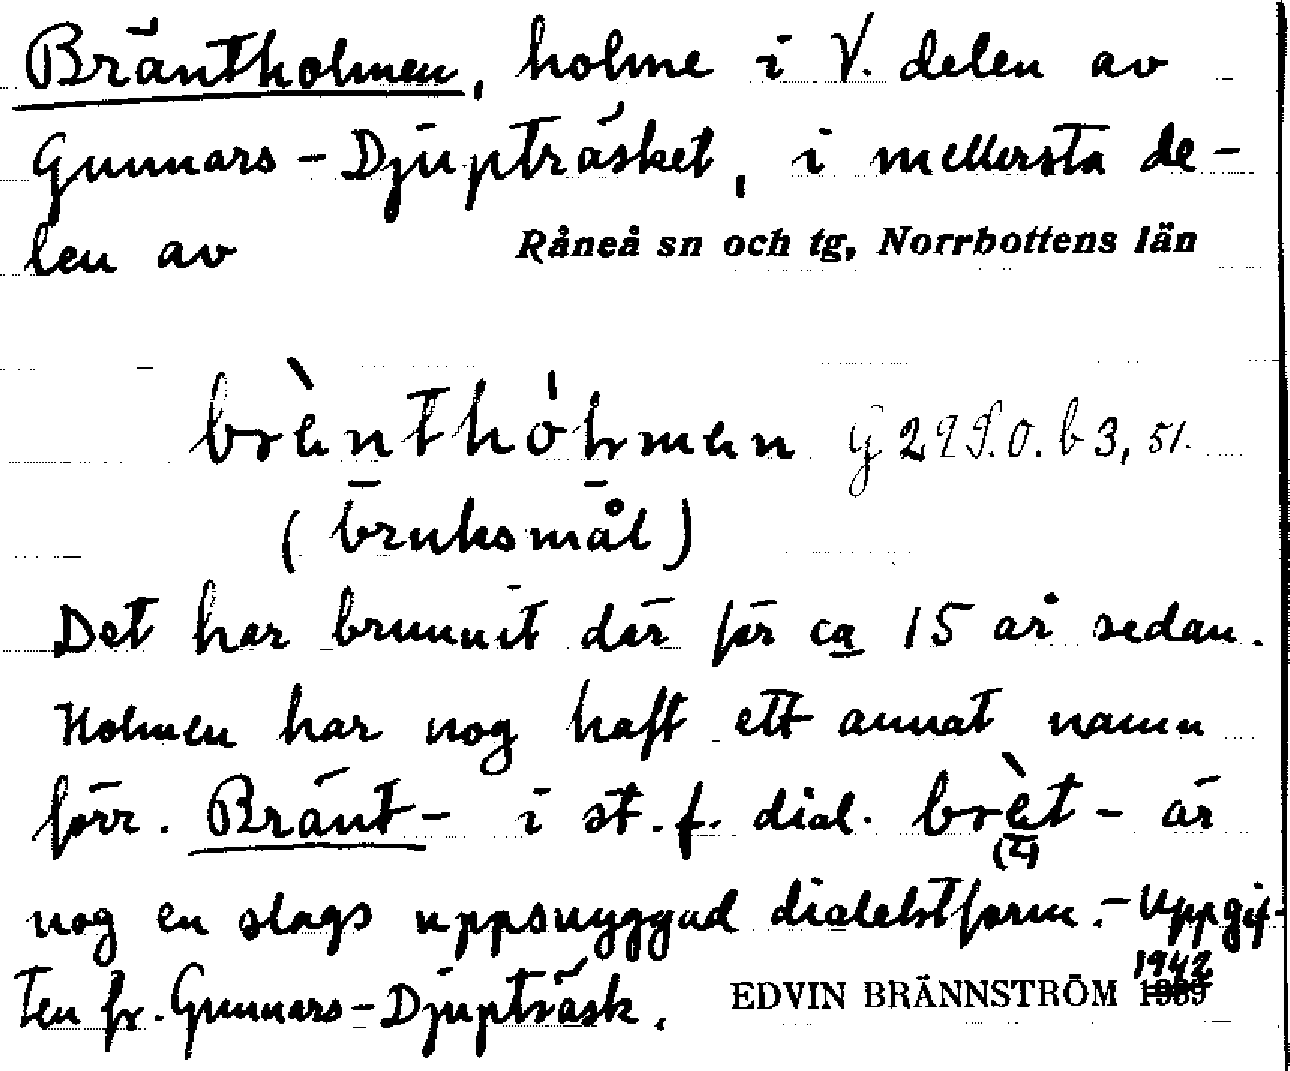 Bräntholmen, holme i V. delen av
Gunnars-Djupträsket, i mellersta de-
len av Råneå sn och tg, Norrbottens län
brènthòlmen
(bruksmål)
Det har brunnit där för ca 15 år sedan.
Holmen har nog haft ett annat namn
förr. Bränt- i st. f. dial. brèt- är
nog en slags uppsnyggad dialektform. - Uppgif-
ten fr. Gunnars-Djupträsk. EDVIN BRÄNNSTRÖM 1942